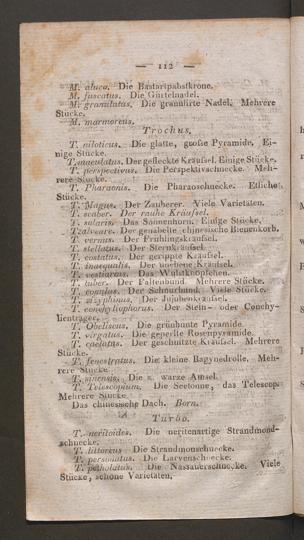 — 112 —
M. aluco. Die Bastartpabstkrone.
M. fuscatus. Die Gürtelnadel.
M. granulatus. Die granulirte Nadel. Mehrere
Stücke.
M. marmoreus.
Trochus.
T. niloticus. Die glatte, grosse Pyramide, Ei-
nige Stücke.
T. maculatus. Der gefleckte Kräusel. Einige Stücke.
T. perspectivus. Die Perspektivschnecke. Meh-
rere Stücke.
T. Pharaonis. Die Pharaoschnecke. Etliche
Stücke.
T. Magus. Der Zauberer. Viele Varietäten.
T. scaber. Der rauhe Kräusel.
T. solaris. Das Sonnenhorn. Einige Stücke.
T. alveare. Der genabelte chinesische Bienenkorb.
T. vernus. Der Frühlingskräusel.
T. stellatus. Der Sternkräusel.
T. costatus. Der gerippte Kräusel.
T. inaequalis. Der unebene Kräusel.
T. vestiarius. Das Wulstknöpfchen.
T. tuber. Der Faltenbund. Mehrere Stücke.
T. conulus. Der Schnurbund. Viele Stücke.
T. zizyphinus. Der Jujubenkräusel.
T. conchyliophorus. Der Stein- oder Conchy-
lienträger.
T. Obeliscus. Die grünbunte Pyramide
T. virgatus. Die geperlte Rosenpyramide.
T. caelatus. Der geschnitzte Kräusel. Mehrere
Stücke.
T. fenestratus. Die kleine Bagynedrolle. Meh-
rere Stücke
T. sinensis. Die s. warze Amsel.
T. Telescopium. Die Seetonne, das Telescop.
Mehrere Stücke
Das chinesische Dach. Born.
Turbo.
T. neritoides. Die neritenartige Strandmond-
schnecke.
T. littoreus Die Strandmondschnecke.
T. personatus. Die Larvenschnecke.
T. petholatus. Die Nassauerschnecke. Viele
Stücke, schöne Varietäten.